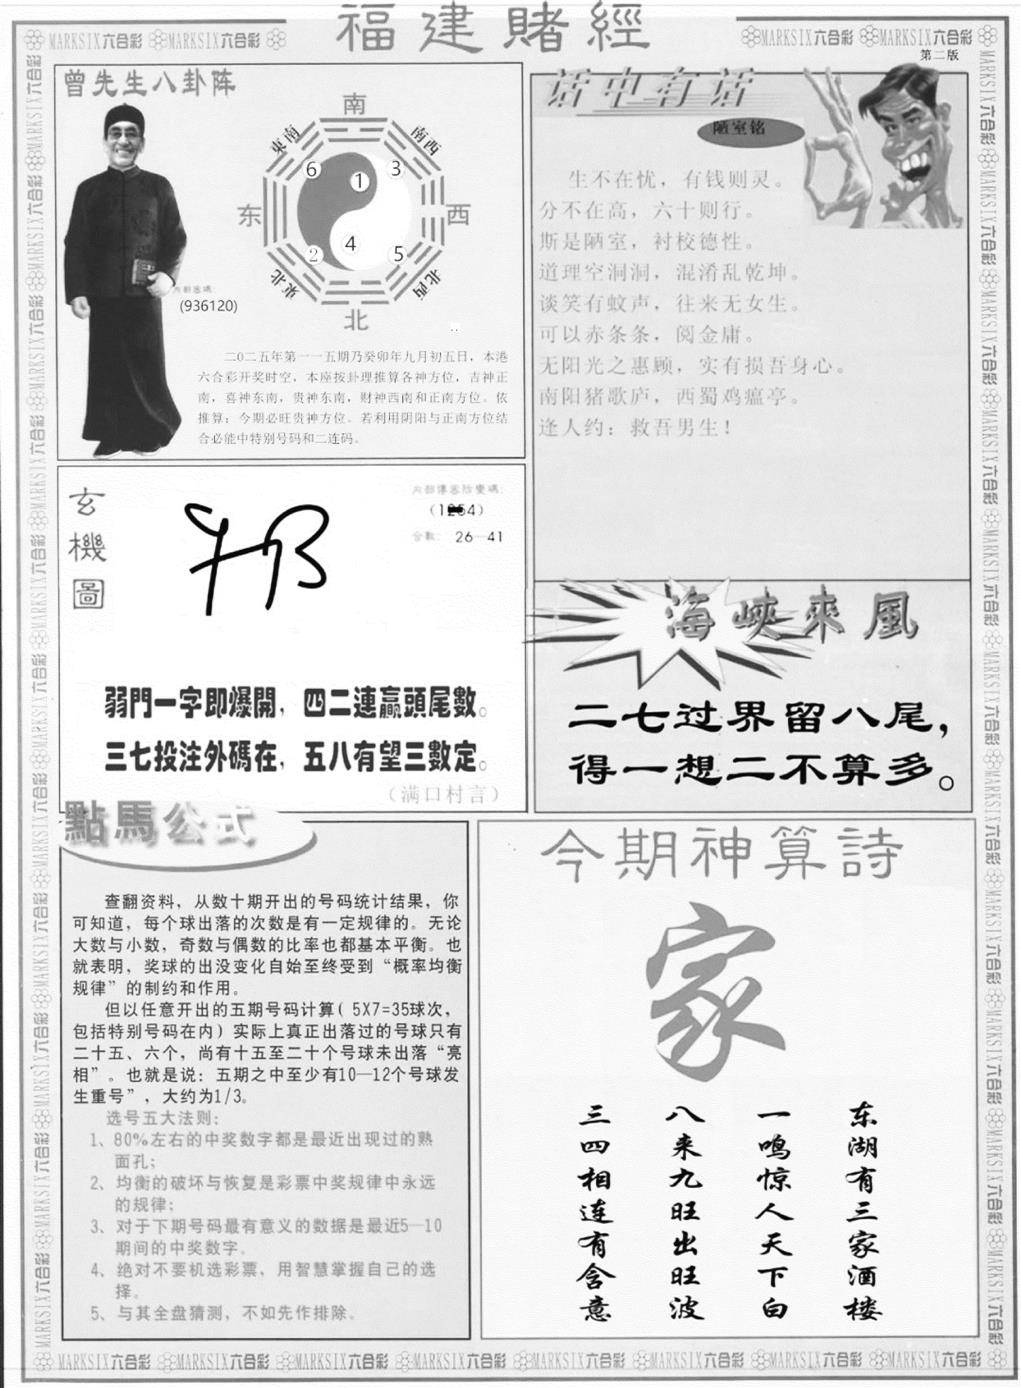 福建賭經
MARKSIX六合彩 MARKSIX六合彩
MARKSIX六合彩 MARKSIX六合彩
第二版
曾先生八卦阵
南
東南
南西
6
1
3
东
西
2
4
5
東北
北西
北
(936120)
二〇二五年第一一五期乃癸卯年九月初五日，本港
六合彩开奖时空，本座按卦理推算各神方位，吉神正
南，喜神东南，贵神东南，财神西南和正南方位。依
推算：今期必旺贵神方位。若利用阴阳与正南方位结
合必能中特别号码和二连码。
话中有话
陋室铭
生不在忧，有钱则灵。
分不在高，六十则行。
斯是陋室，衬校德性。
道理空洞洞，混淆乱乾坤。
谈笑有蚊声，往来无女生。
可以赤条条，阅金庸。
无阳光之惠顾，实有损吾身心。
南阳猪歌庐，西蜀鸡瘟亭。
逢人约：救吾男生！
玄機圖
合數： 26—41
弱門一字即爆開，四二連贏頭尾數。
三七投注外碼在，五八有望三數定。
（满口村言）
海峽來風
二七过界留八尾，
得一想二不算多。
點馬公式
查翻资料，从数十期开出的号码统计结果，你
可知道，每个球出落的次数是有一定规律的。无论
大数与小数，奇数与偶数的比率也都基本平衡。也
就表明，奖球的出没变化自始至终受到“概率均衡
规律”的制约和作用。
但以任意开出的五期号码计算( 5X7=35球次，
包括特别号码在内）实际上真正出落过的号球只有
二十五、六个，尚有十五至二十个号球未出落“亮
相”。也就是说：五期之中至少有10—12个号球发
生重号”，大约为1/3。
选号五大法则：
1、80%左右的中奖数字都是最近出现过的熟
面孔；
2、均衡的破坏与恢复是彩票中奖规律中永远
的规律；
3、对于下期号码最有意义的数据是最近5—10
期间的中奖数字。
4、绝对不要机选彩票，用智慧掌握自己的选
择。
5、与其全盘猜测，不如先作排除。
今期神算詩
家
东湖有三家酒楼
一鸣惊人天下白
八来九旺出旺波
三四相连有含意
MARKSIX六合彩 MARKSIX六合彩 MARKSIX六合彩 MARKSIX六合彩 MARKSIX六合彩 MARKSIX六合彩 MARKSIX六合彩 MARKSIX六合彩